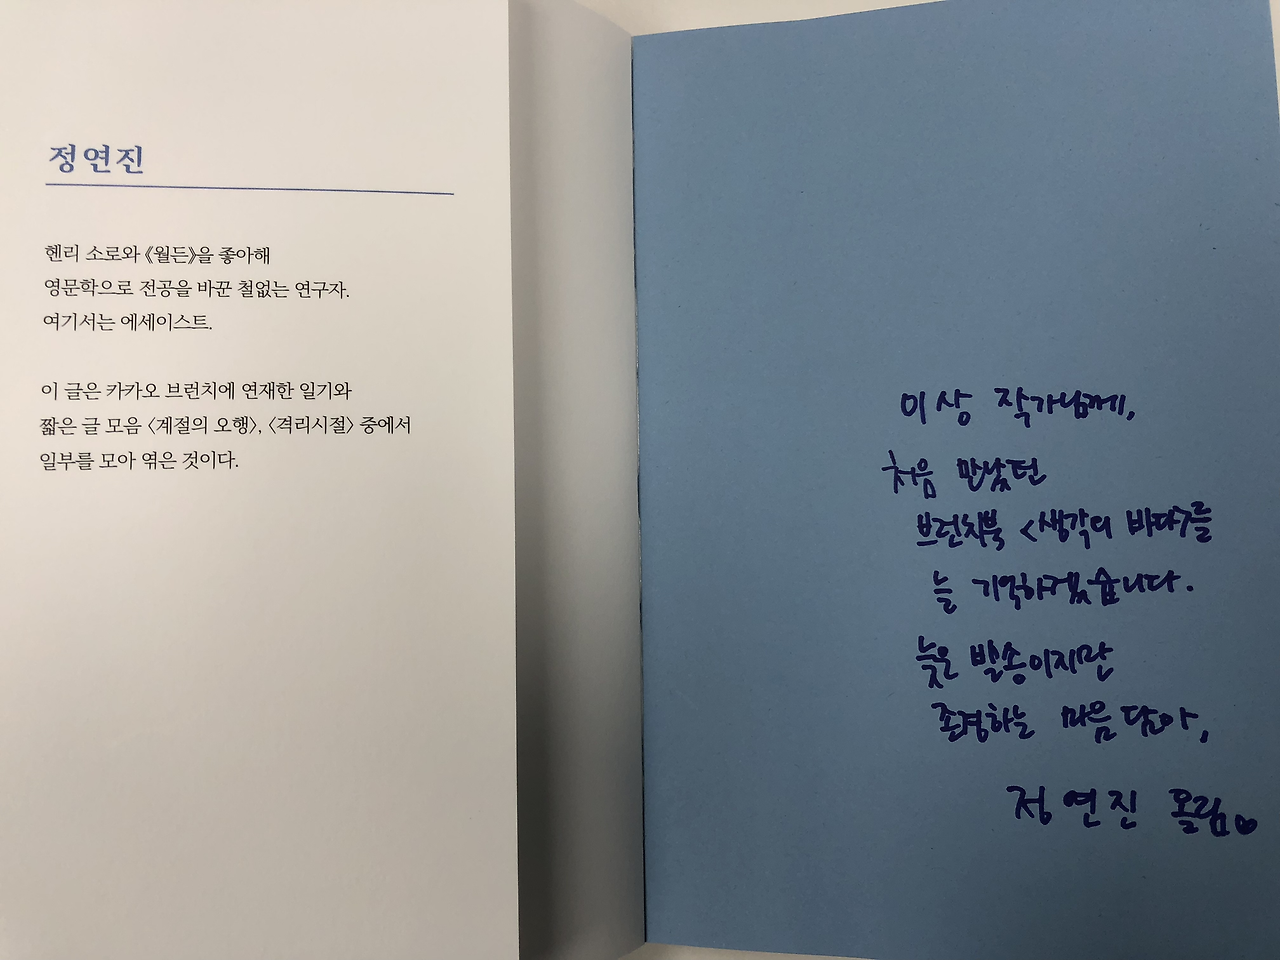 정연진
헨리 소로와 《월든》을 좋아해
영문학으로 전공을 바꾼 철없는 연구자.
여기서는 에세이스트.
이 글은 카카오 브런치에 연재한 일기와
짧은 글 모음 〈계절의 오행〉, 〈격리시절〉 중에서
일부를 모아 엮은 것이다.
이상 작가님께,
처음 만났던
브런치북 <생각의 바다>를
늘 기억하겠습니다.
늦은 발송이지만
존경하는 마음 담아,
정연진 올림